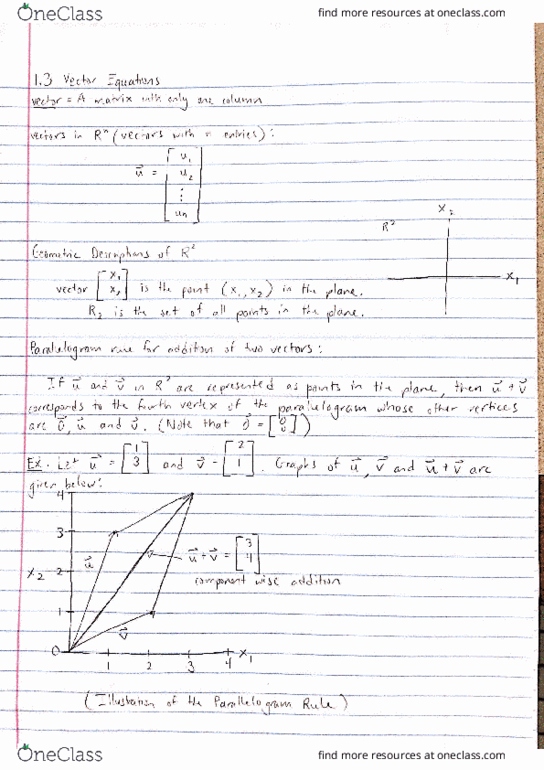 OneClass find more resources at oneclass.com
1.3 Vector Equations
vector = A matrix with only one column
vectors in Rⁿ (vectors with n entries):
u⃗ = [u₁ u₂ ⋮ uₙ]
R² x₂
x₁
Geometric Descriptions of R²
vector [x₁ x₂] is the point (x₁, x₂) in the plane.
R₂ is the set of all points in the plane.
Parallelogram rule for addition of two vectors:
If u⃗ and v⃗ in R² are represented as points in the plane, then u⃗ + v⃗
corresponds to the fourth vertex of the parallelogram whose other vertices
are 0⃗, u⃗ and v⃗. (Note that 0⃗ = [0 0])
Ex. Let u⃗ = [1 3] and v⃗ = [2 1]. Graphs of u⃗, v⃗ and u⃗ + v⃗ are
given below:
4
3
u⃗ u⃗ + v⃗ = [3 4]
x₂ 2 component wise addition
1
v⃗
0 1 2 3 4 x₁
(Illustration of the Parallelogram Rule)
OneClass find more resources at oneclass.com